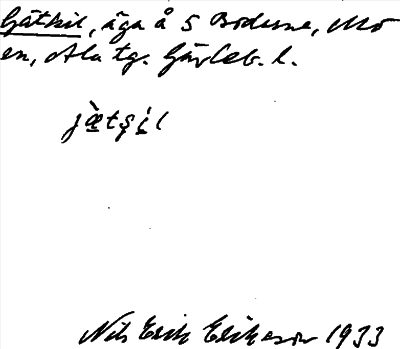 Gätkil, äga å S Boderne, Mo
en, Ala tg. Gävleb. l.
jæ̀tʂíl
Nils Erik Erikson 1933